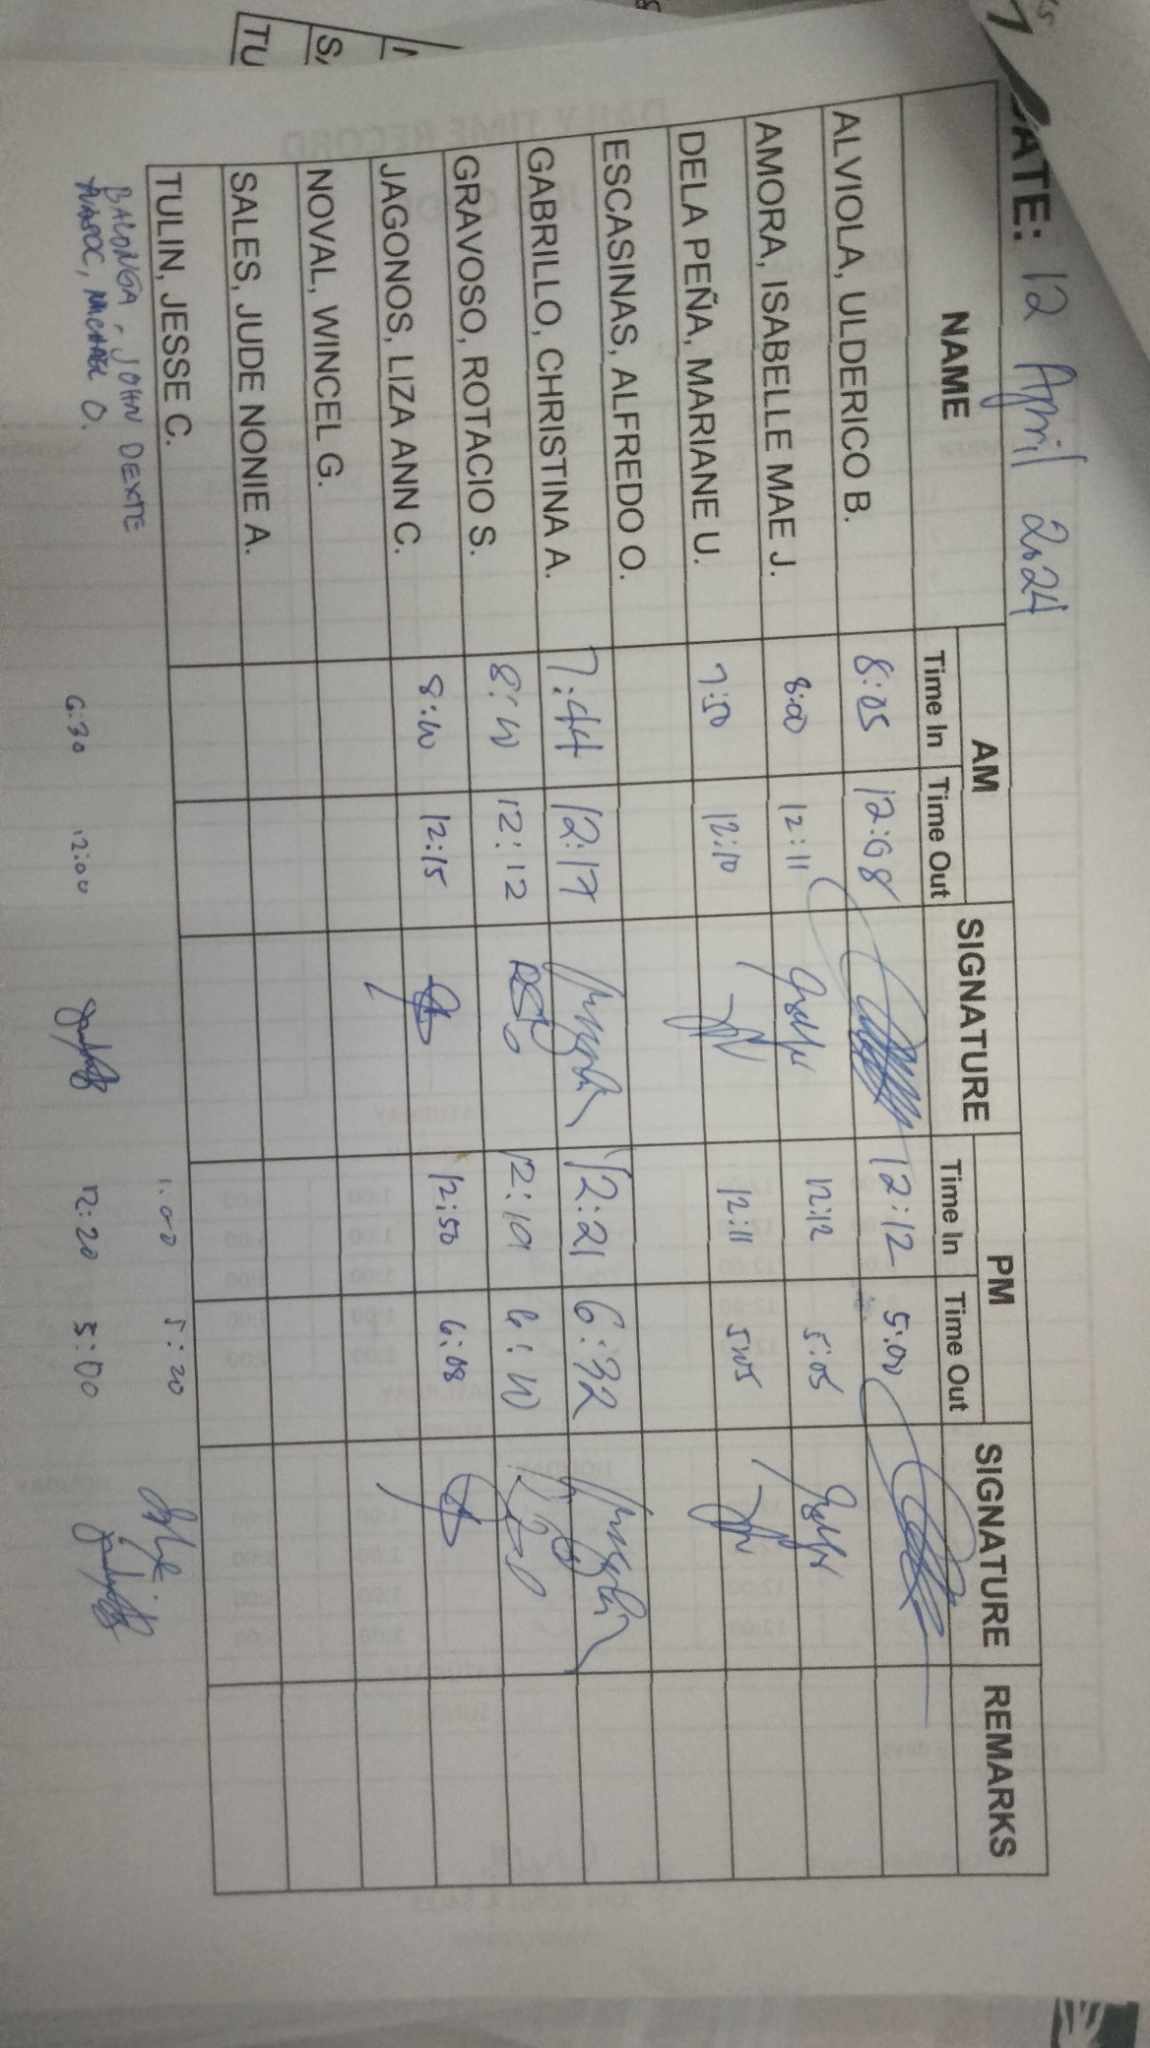 DATE: 12 April 2024
NAME AM SIGNATURE PM SIGNATURE REMARKS
Time In Time Out Time In Time Out
ALVIOLA, ULDERICO B. 8:05 12:08 12:12 5:00
AMORA, ISABELLE MAE J. 8:00 12:11 12:12 5:05
DELA PEÑA, MARIANE U. 7:50 12:10 12:11 5:05
ESCASINAS, ALFREDO O.
GABRILLO, CHRISTINA A. 7:44 12:17 12:21 6:32
GRAVOSO, ROTACIO S. 8:10 12:12 12:19 6:10
JAGONOS, LIZA ANN C. 8:10 12:15 12:50 6:08
NOVAL, WINCEL G.
SALES, JUDE NONIE A.
TULIN, JESSE C.
BALONGA, JOHN DEXTE 1:00 5:20
MICHAEL O. 6:30 12:00 12:20 5:00